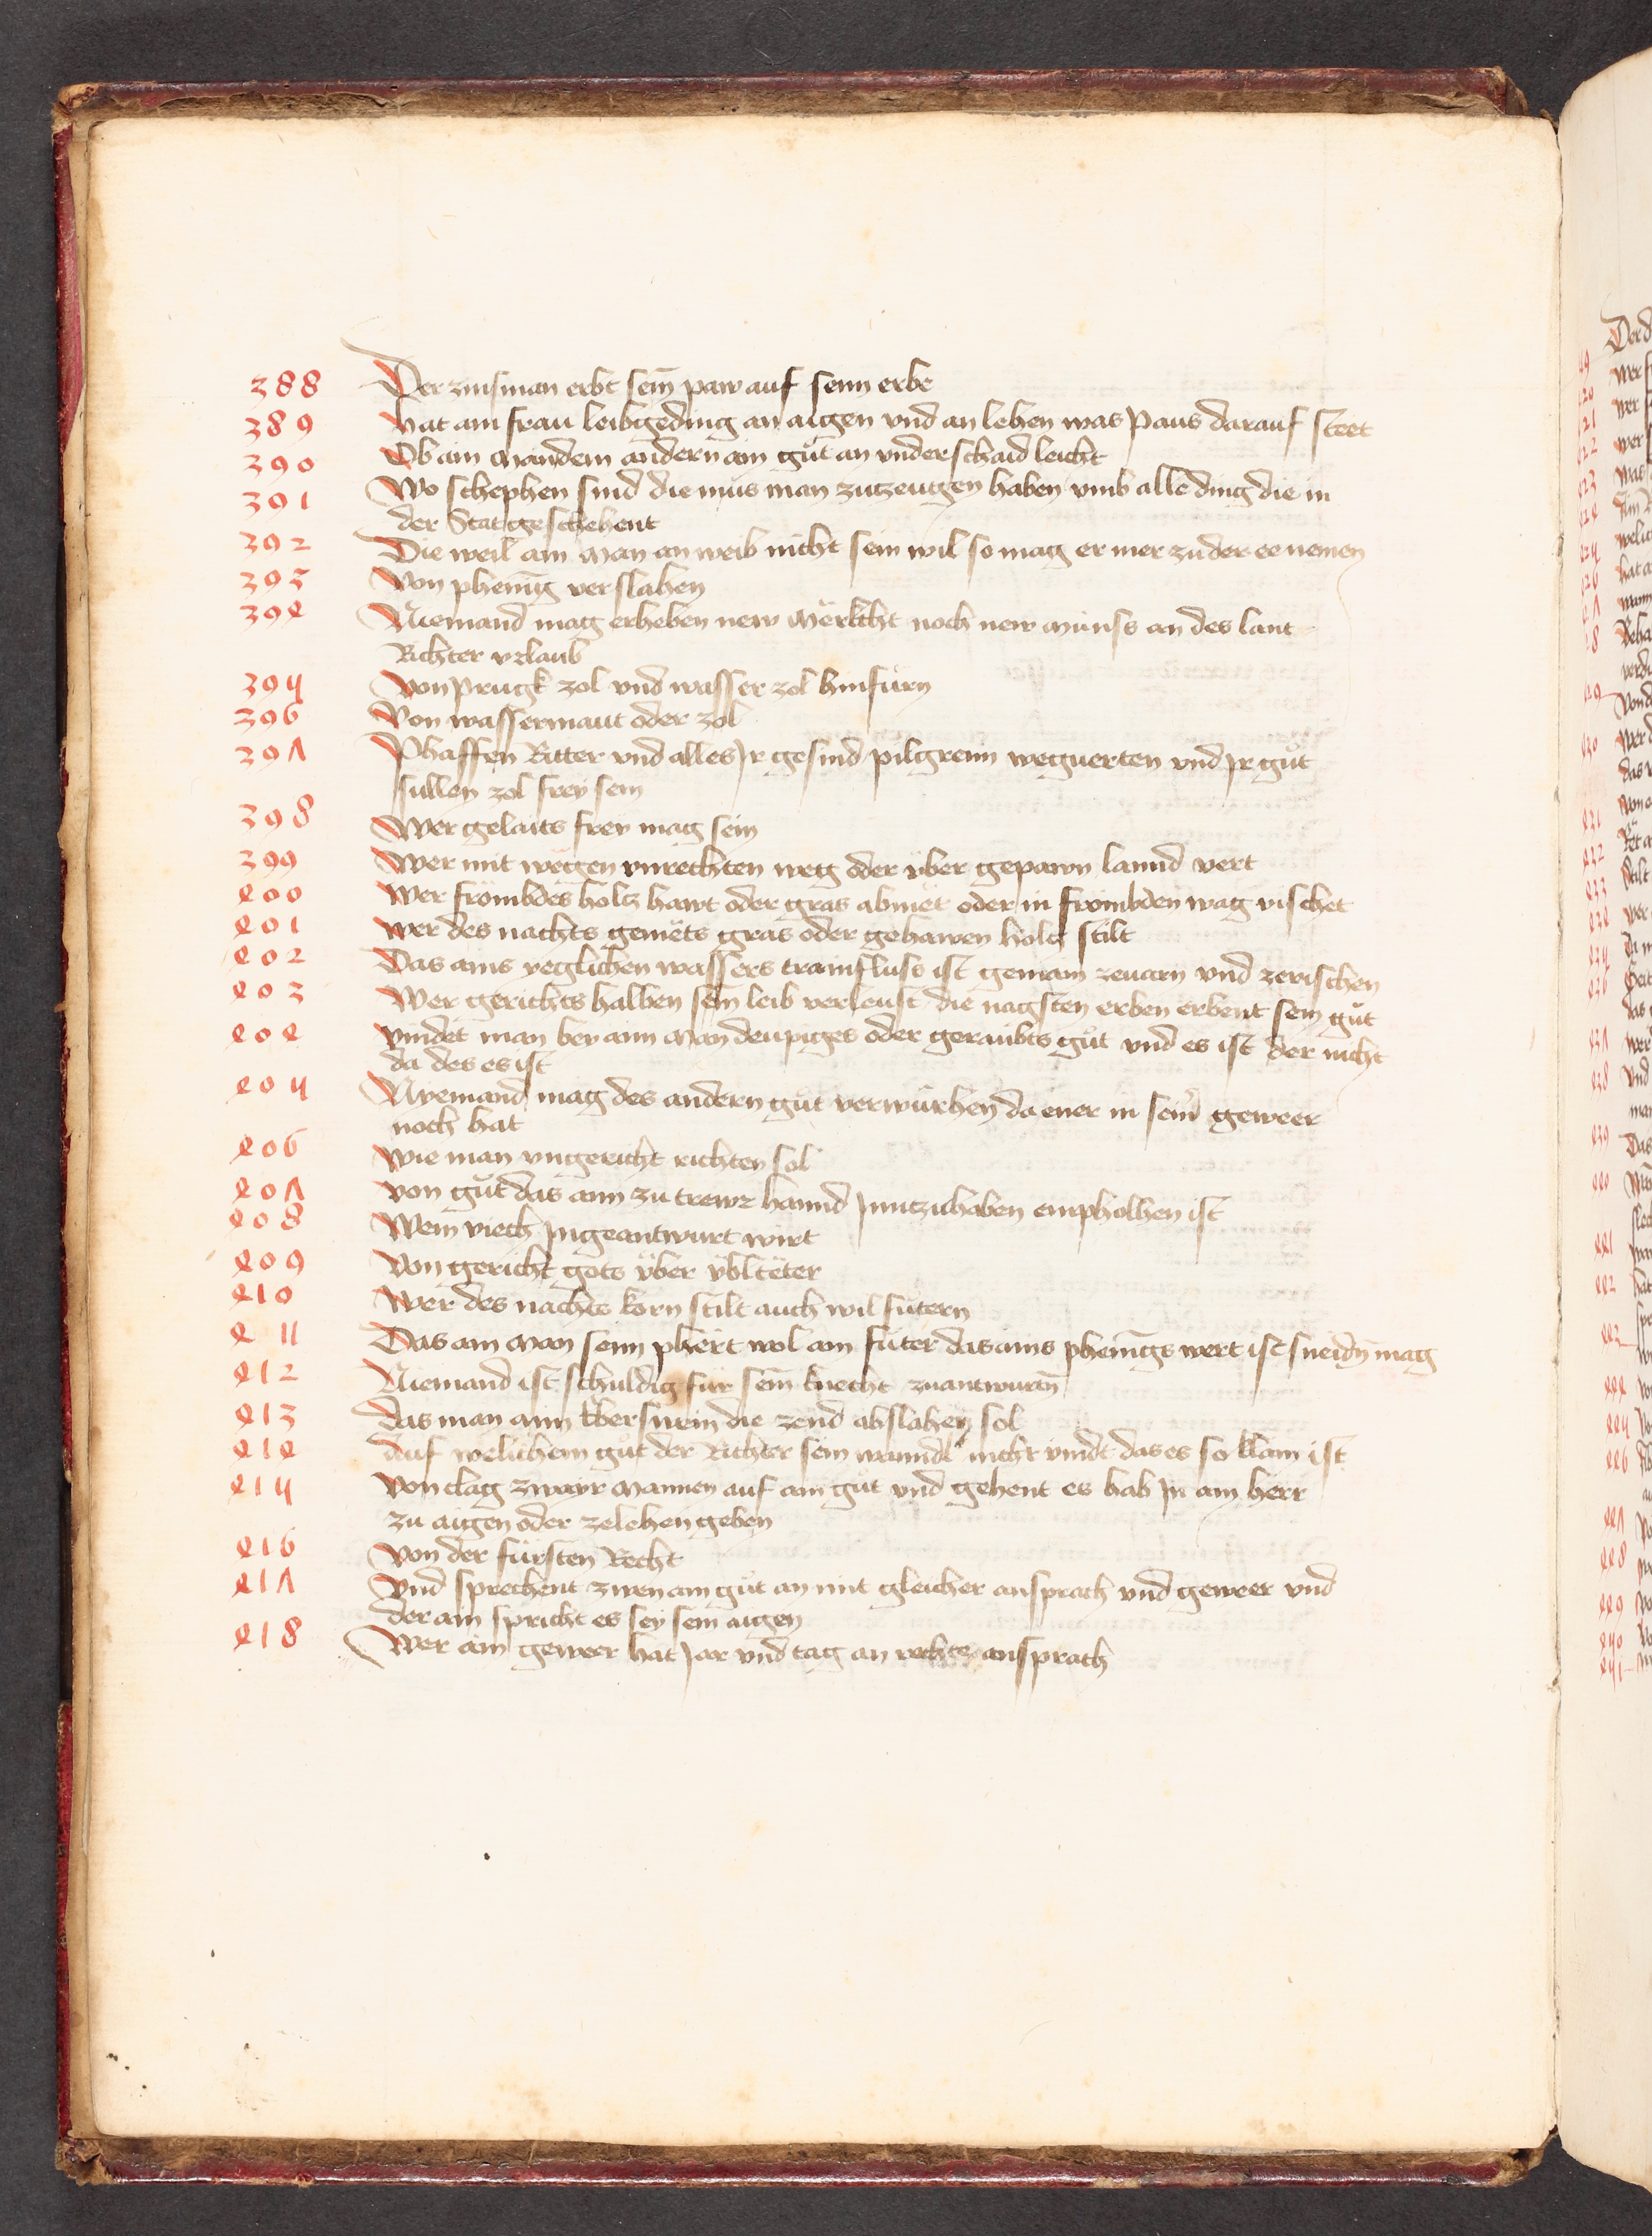 388 Der zinsman erbt sein paw auf seinn erbe
389 hat ain frau leibgeding an aigen vnd an lehen was Paus darauf steet
390 Ob ain Man dem andern ain gůt an vnderschaid leicht
391 Wo schephen sind die mus man zutzeugen haben vmb alle ding die in
der Stat geschehent
392 Die weil ain Man an weib nicht sein wil so mag er mer zu der ee nemen
393 Von phenīg verslahen
394 Niemand mag erheben new Märkcht noch new Münss an des lant
Richter vrlaub
395 Von Prugk zol vnd wasser zol hinfürn
396 Von wassermaut oder zol
397 Phaffen Ritter vnd alles Jr gesind pilgreim weguerten vnd Jr gůt
sullen zol frey sein
398 Wer gelaits frey mag sein
399 Wer mit wägen vnrechten weg oder vber gepawn lannd vert
400 Wer frömbdes holtz hawt oder gras abmet oder in frömbden wag vischet
401 Wer des nachts gemëts gras oder gehawen holtz stilt
402 Das ains yeglichen wassers tramfluss ist gemain zeuarn vnd zevischen
403 Wer gerichts halben sein leib verleust die nagsten erben erbent sein gůt
404 Vindet man bey ainn Man deupiges oder geraubts gůt vnd es ist der nicht
da des es ist
405 Nyemand mag des andern gut verwürhen da ener in seinr geweer
noch hat
406 Wie man vngericht richten sol
407 Von gůt das ainn zu trewr hannd Jnntzuhaben empholhen ist
408 Wem viech Jngeantwurt wirt
409 Von gericht gots vber vbltëter
410 Wer des nachts korn stilt auch wil fütern
411 Das ain Man seinn phërt wol ain füter das ains phenīgs wert ist sneidn mag
412 Niemand ist schuldig für sein knecht zuantwurtn
413 Das man ainn Ebersuein die zend abslahen sol
414 Auf welichem gůt der Richter sein wanndl nicht vindt das es so klain ist
415 Von clag zwayr Mannen auf ain gůt vnd gehent es hab Jn ain herr
zu aigen oder zelehen geben
416 Von der fürsten Recht
417 Vnd sprechent zwen ain gůt an mit gleicher ansprach vnd geweer vnd
der ain spricht es sey sein aigen
418 Wer ain geweer hat Jar vnd tag an rechte ansprach